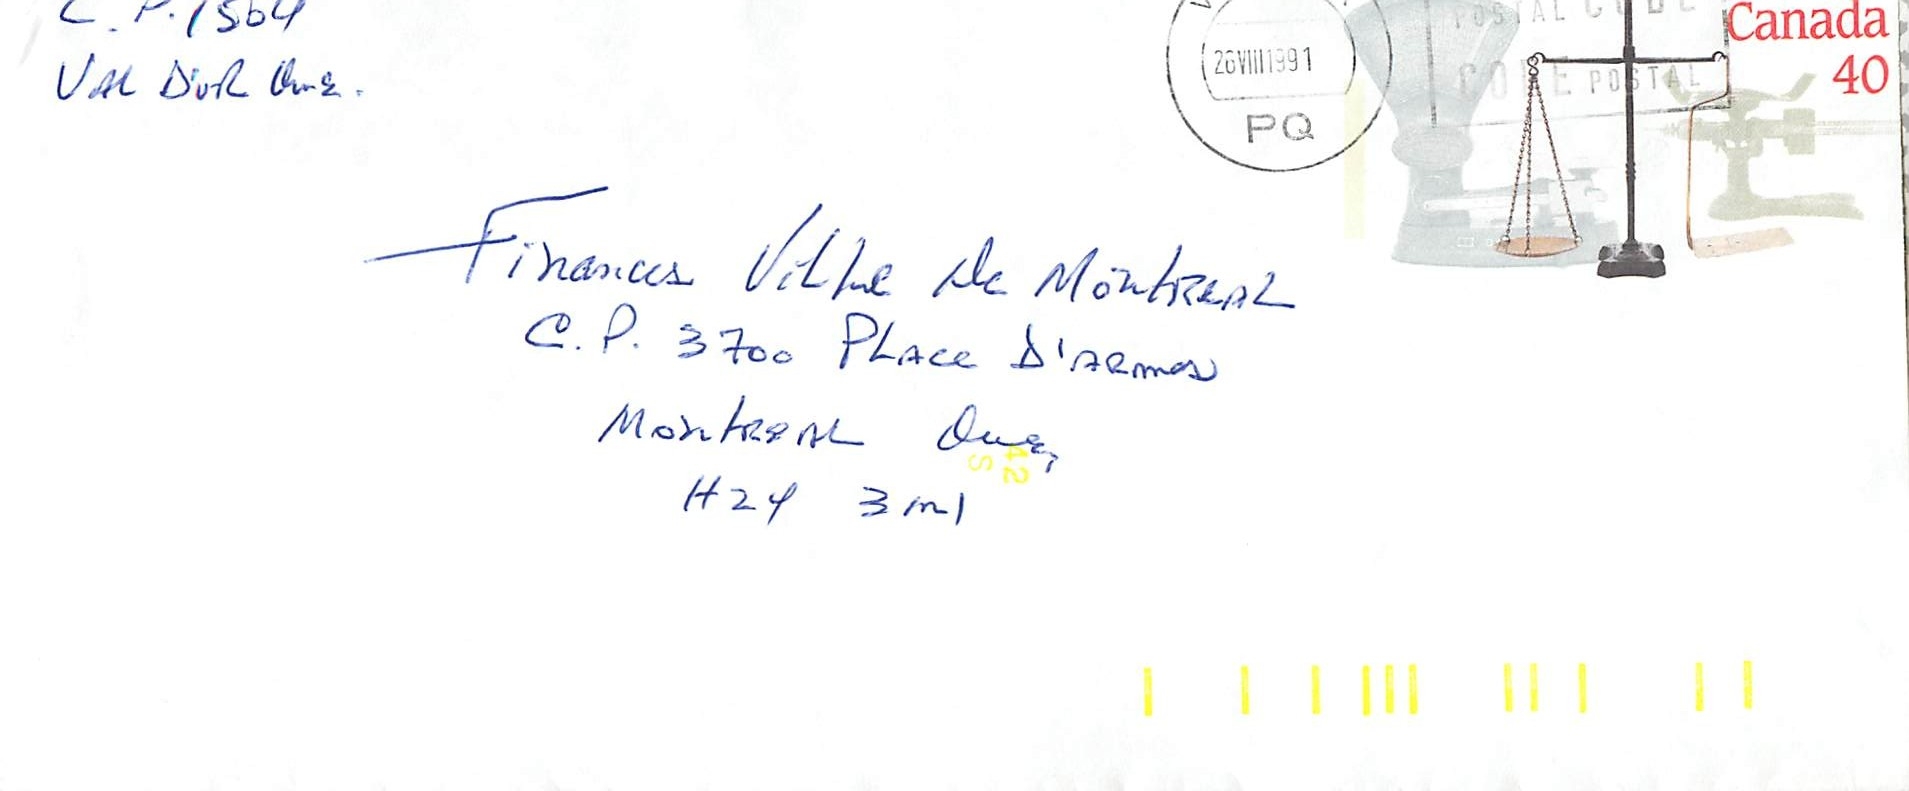 C. P. 1564
Val D'or Que.
26 VIII 1991
PQ
POSTAL CODE
CODE POSTAL
Canada
40
Finances Ville de Montreal
C. P. 3700 Place D'armes
Montreal Que,
H2Y 3M1
42
S